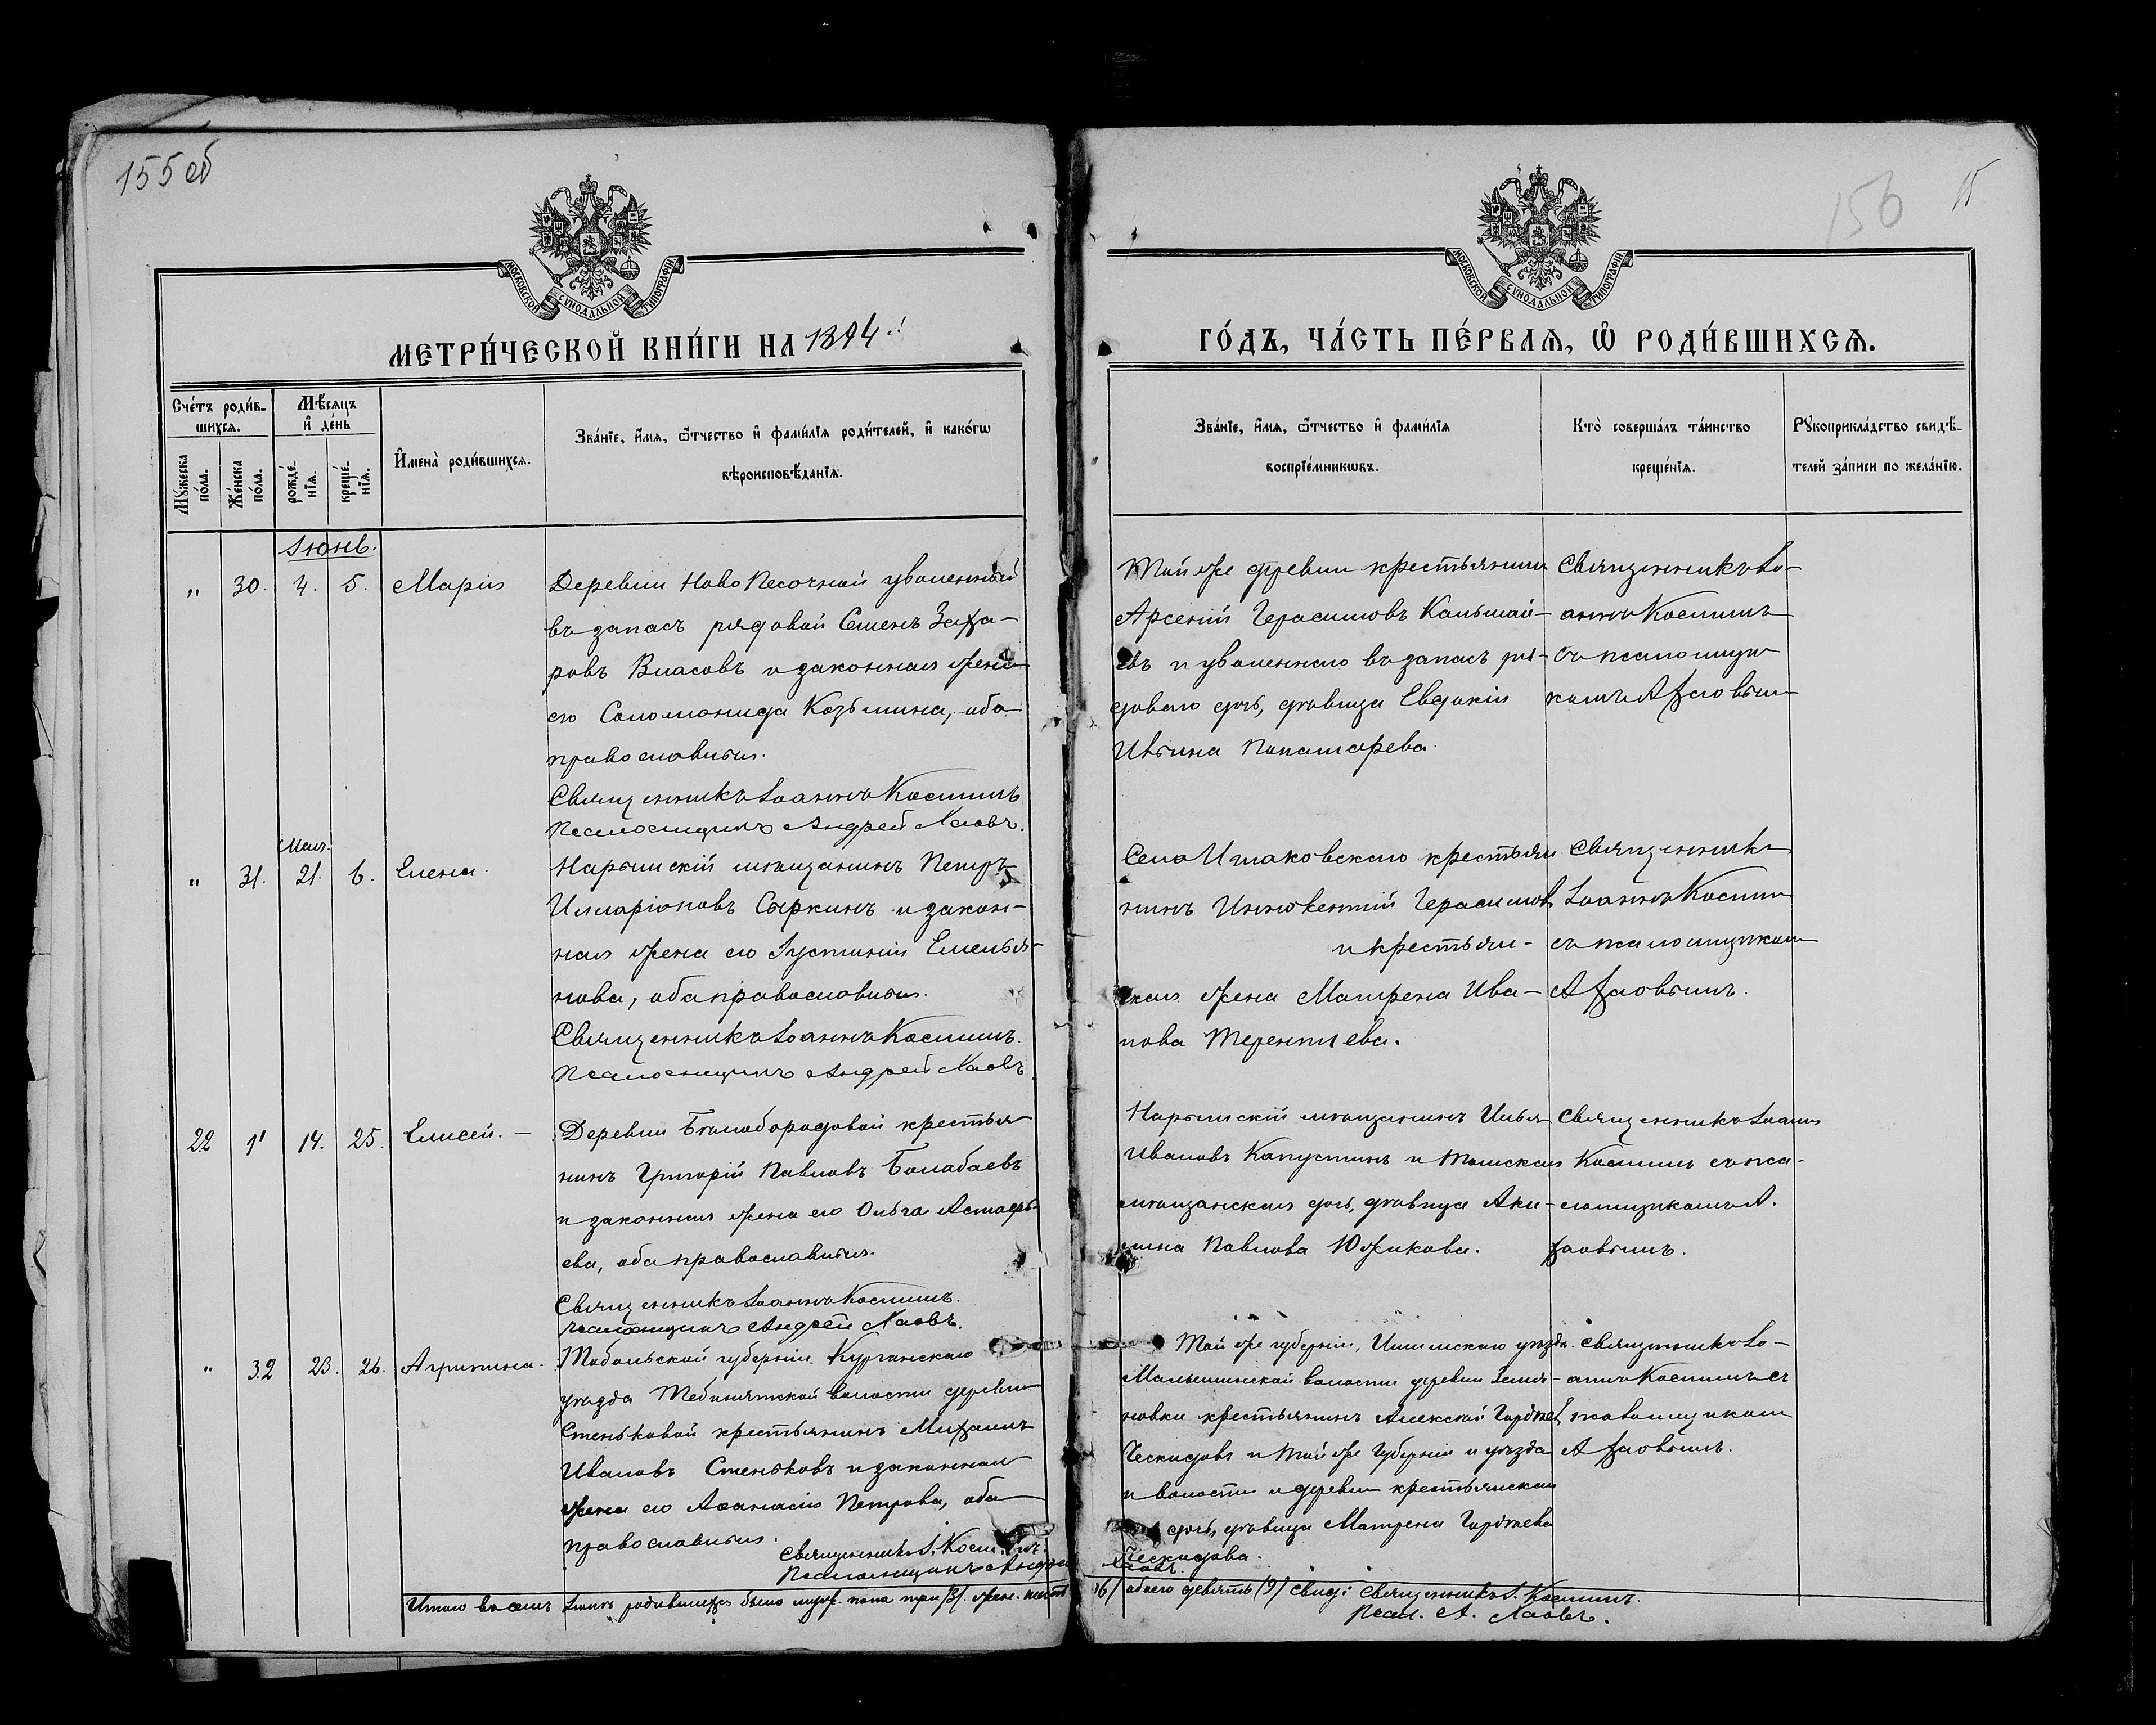 155 об
156
15
МОСКОВСКОЙ СѴНОДАЛЬНОЙ ТИПОГРАФІИ
МОСКОВСКОЙ СѴНОДАЛЬНОЙ ТИПОГРАФІИ
МЕТРИ́ЧЕСКОЙ КНИ́ГИ НА 1894
ГО́ДЪ, ЧА́СТЬ ПЕ́РВАѦ, Ѡ҆ РОДИ́ВШИХСѦ.
Сче́тъ роди́в-
шихсѧ.
Мꙋ́жеска
по́ла.
Же́нска
по́ла.
Мѣ́сѧцъ
и҆ де́нь
рожде́-
нїѧ.
креще́-
нїѧ.
И҆мена̀ роди́вшихсѧ.
Зва́нїе, и҆́мѧ, ѻ҆́тчество и҆ фами́лїѧ роди́телей, и҆ како́гѡ
вѣроисповѣ́данїѧ.
Зва́нїе, и҆́мѧ, ѻ҆́тчество и҆ фами́лїѧ
воспрїе́мникѡвъ.
Кто̀ соверша́лъ та́инство
креще́нїѧ.
Рꙋкоприкла́дство свидѣ́-
телей за́писи по жела́нїю.
Іюнь.
" 30. 4. 5. Марія
Деревни Ново Песочной уволенный
въ запасъ рядовой Семенъ Заха-
ровъ Власовъ и законная жена
его Соломонида Козьмина, оба
православные.
Священникъ Іоаннъ Косминъ
Псаломщикъ Андрей Хаовъ.
Той же деревни крестьянинъ
Арсеній Герасимовъ Колмай-
евъ и уволеннаго въ запасъ ря-
доваго дочь, дѣвица Евдокія
Ивлина
Священникъ Іо-
аннъ Косминъ
съ псаломщи-
комъ А Хаовым
Мая.
" 31. 21. 6. Елена.
Нарымскій мѣщанинъ Петръ
Иларіоновъ Сыркинъ и закон-
ная жена его Іустинія Емелья-
нова, оба православные.
Священникъ Іоаннъ Косминъ.
Псаломщикъ Андрей Хаовъ.
Села Ишаковскаго крестьяни
нинъ Иннокентій Герасимов
и крестьян-
ская жена Матрена Ива-
нова Терентиева.
Священникъ
Іоаннъ Космин
съ псаломщикам
А Хаовымъ.
22 1' 14. 25. Елисей. —
Деревни Бѣлобородовой крестья
нинъ Григорій Павловъ Болабаевъ
и законная жена его Ольга Астафь-
ева, оба православные.
Священникъ Іоаннъ Космин.
псаломщикъ Андрей Хаовъ.
Нарымскій мѣщанинъ Илья
Ивановъ Капустинъ и Томская
мѣщанская дочь, дѣвица Аки-
лина Павлова Южакова.
Священникъ Іоаннъ
Космин съ пса-
ломщикомъ А.
Хаовымъ.
" 32 23. 26. Агрипина.
Тобольской губерніи Курганскаго
уѣзда Тебинятской волости деревни
Стеньковой крестьянинъ Михаилъ
Ивановъ Стеньковъ и законная
жена его Аѳанасія Петрова, оба
православные.
Священникъ І. Космин.
Псаломщикъ Андрей
Хаовъ.
Той же губерніи, Ишимскаго уѣзда
Малышинской волости деревни Земля-
новки крестьянинъ Алексей Гордѣев
Ческидовъ и той же Губерніи и уѣзда
и волости и деревни крестьянская
дочь, дѣвица Матрена Гордѣева
Ческидова.
Священникъ Іо-
аннъ Космин съ
псаломщиком
А Хаовымъ.
Итого въ Іюнѣ родившихся было муж. пола три /3/. жен. шесть
/6/ обоего девять (9) свид: Священникъ І. Косминъ.
Псал. А. Хаовъ.